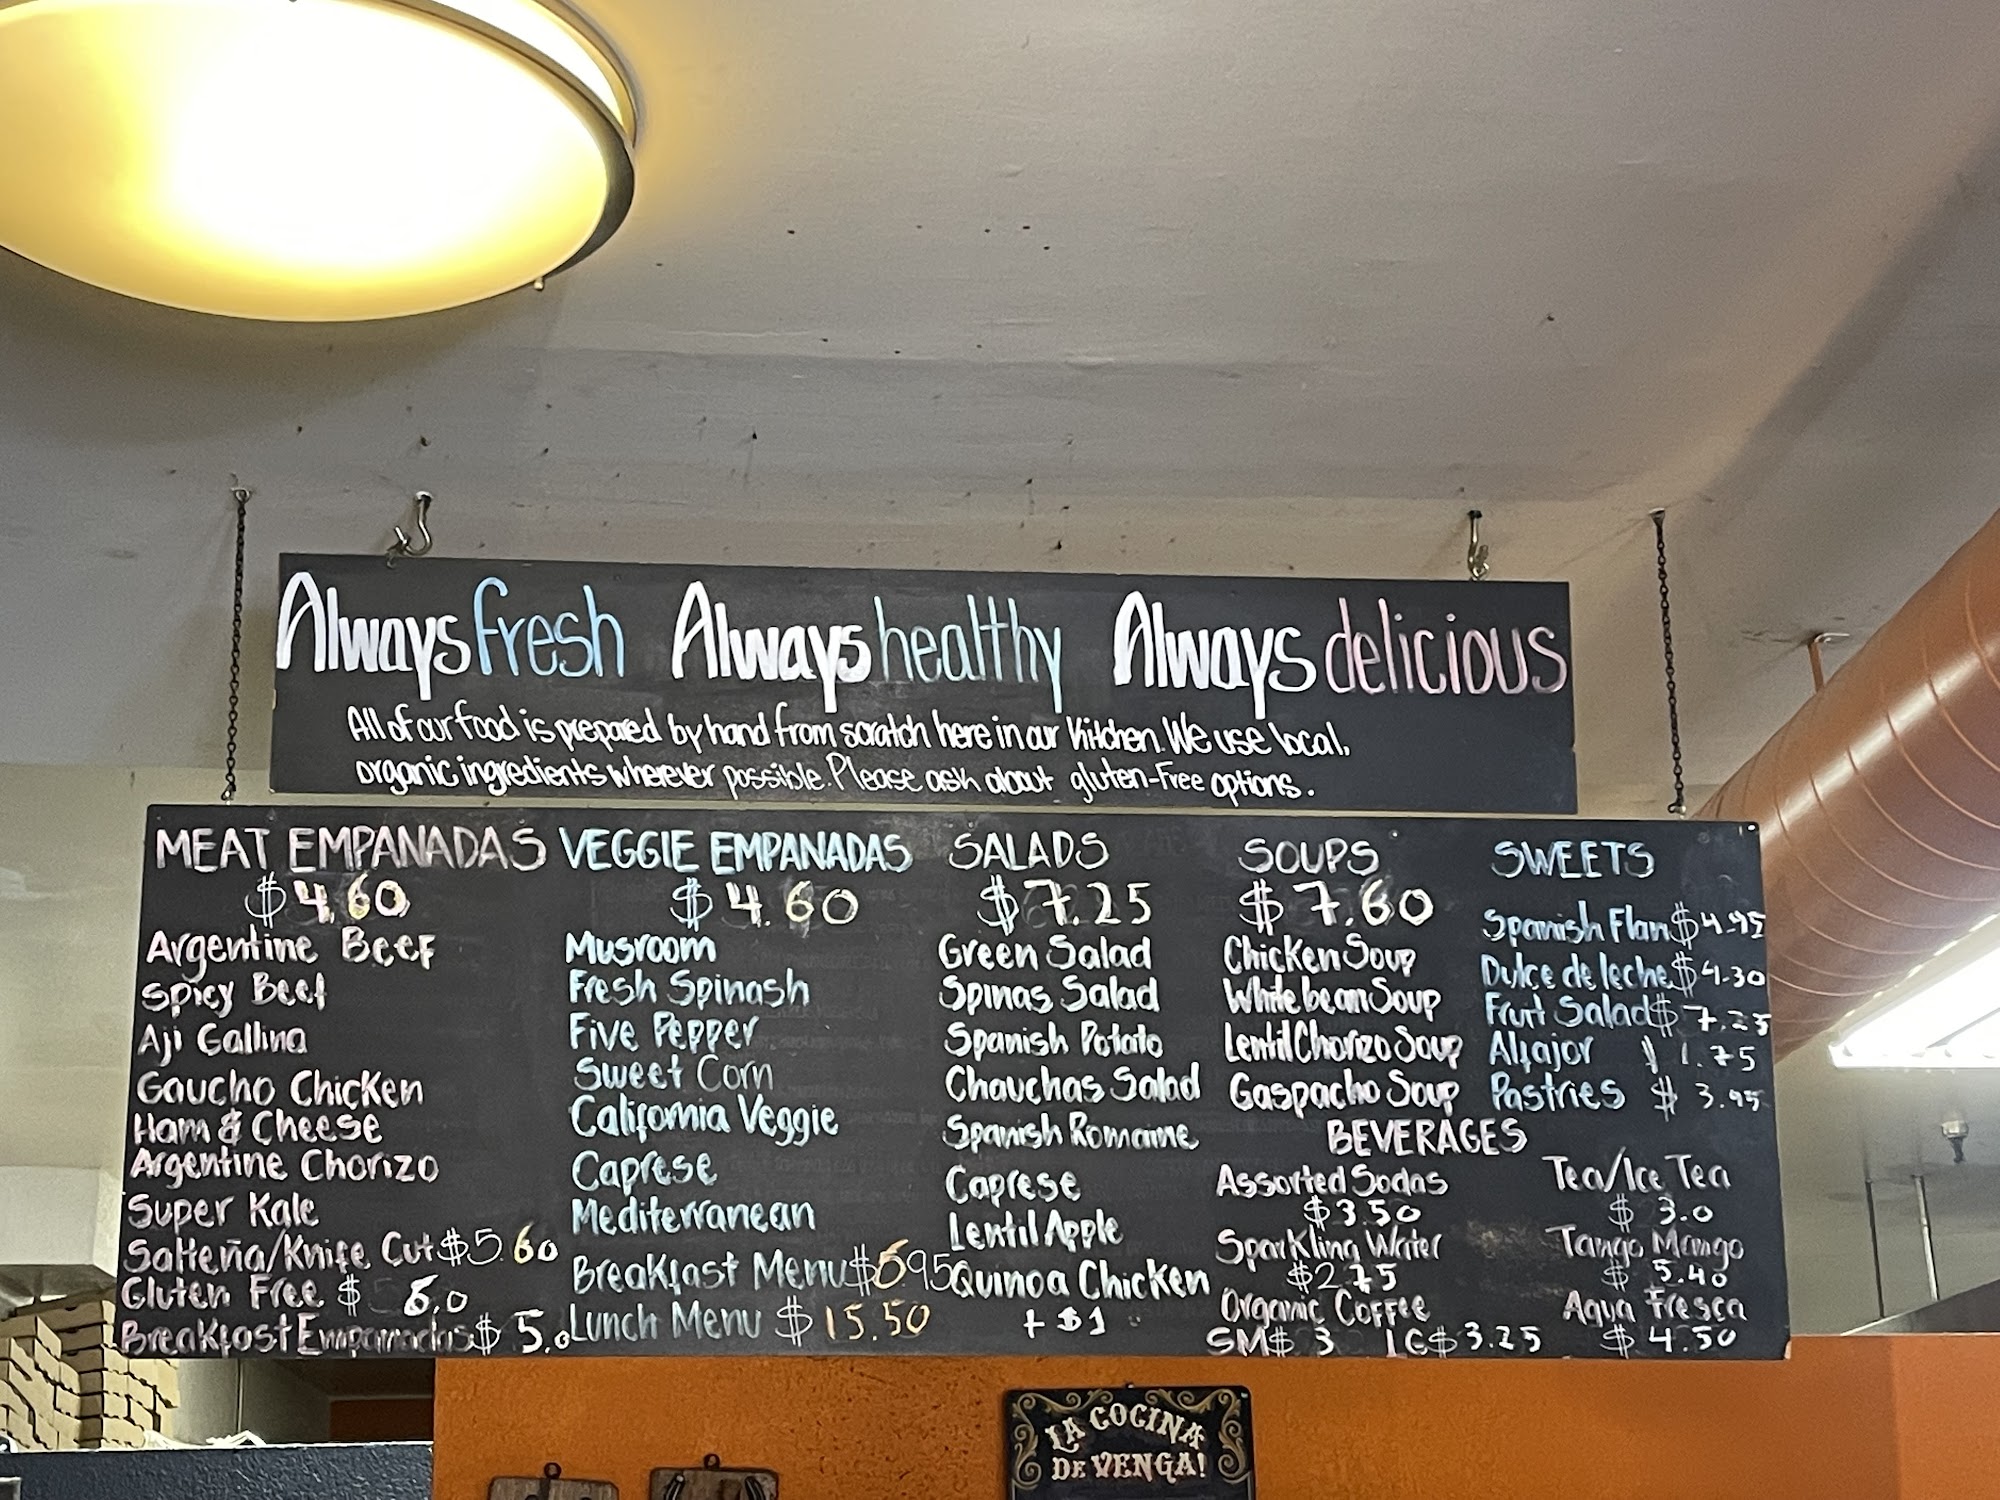 Always fresh Always healthy Always delicious
All of our food is prepared by hand from scratch here in our Kitchen. We use local,
organic ingredients wherever possible. Please ask about gluten-free options.
MEAT EMPANADAS
$4.60
Argentine Beef
Spicy Beef
Aji Gallina
Gaucho Chicken
Ham & Cheese
Argentine Chorizo
Super Kale
Salteña/Knife Cut $5.60
Gluten Free $ 6.0
Breakfast Empanadas $ 5.0
VEGGIE EMPANADAS
$4.60
Musroom
Fresh Spinash
Five Pepper
Sweet Corn
California Veggie
Caprese
Mediterranean
Breakfast Menu $6 95
Lunch Menu $15.50
SALADS
$7.25
Green Salad
Spinas Salad
Spanish Potato
Chauchas Salad
Spanish Romaine
Caprese
Lentil Apple
Quinoa Chicken
+ $1
SOUPS
$7.60
Chicken Soup
White bean Soup
Lentil Chorizo Soup
Gaspacho Soup
SWEETS
Spanish Flan $4.95
Dulce de leche $4.30
Fruit Salad $7.25
Alfajor $ 1.75
Pastries $ 3.95
BEVERAGES
Assorted Sodas
$3 50
Sparkling Water
$2 75
Organic Coffee
SM$ 3 LG$ 3.25
Tea/Ice Tea
$ 3.0
Tango Mango
$ 5.40
Agua Fresca
$ 4.50
LA COCINA
DE VENGA!